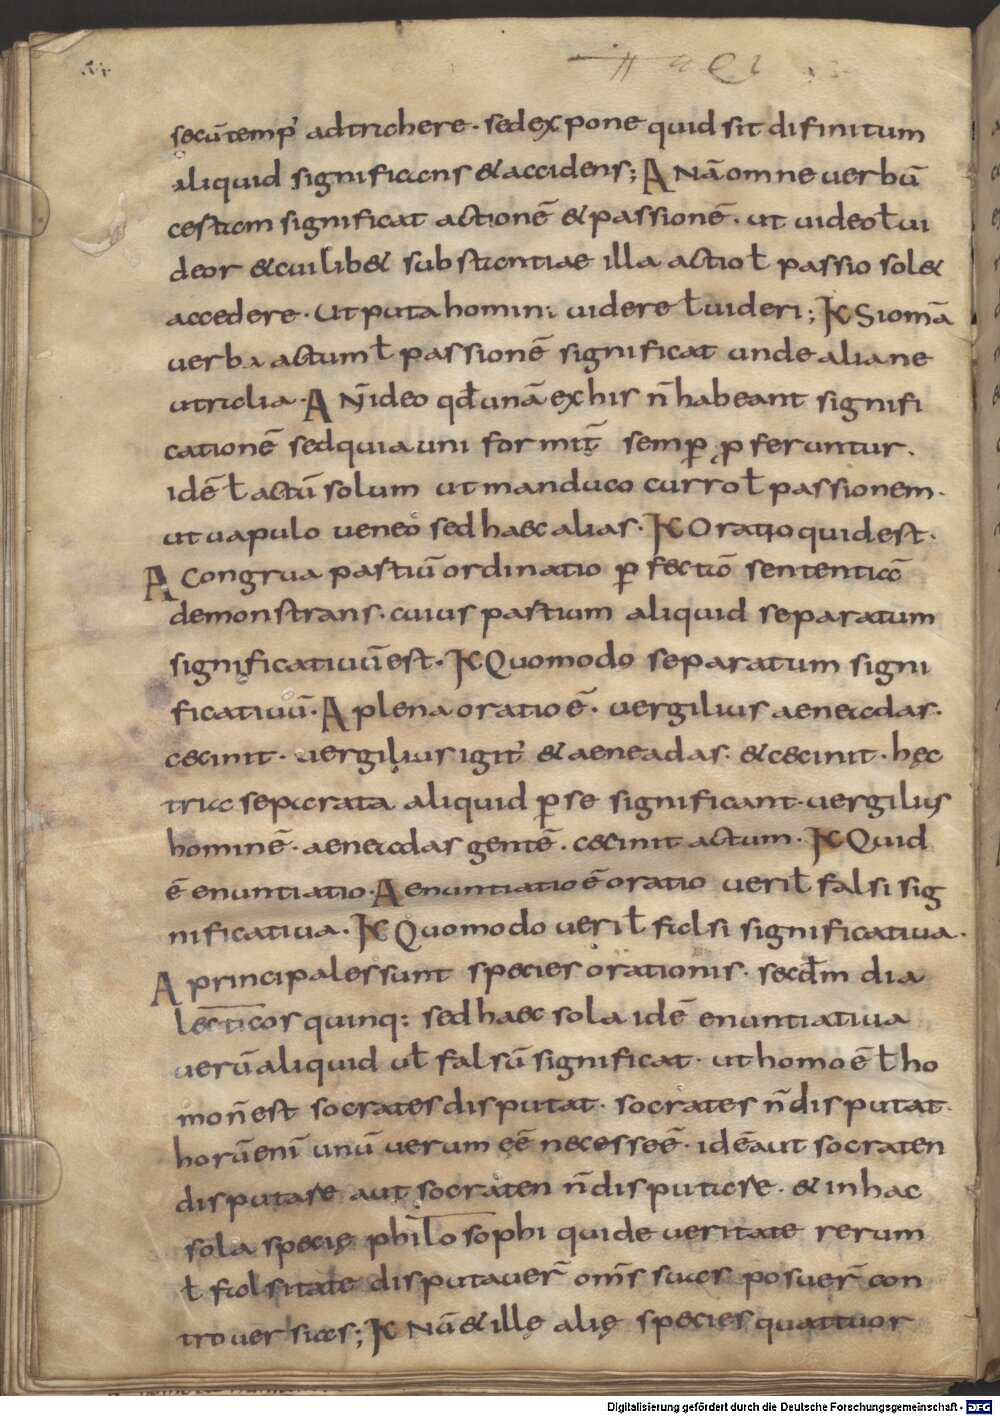 secū temp̄ ad trahere · sed expone quid sit difinitum
aliquid significans & accidens; A Nā omne uerbū
certam significat actionē & passionē · ut uideo ł ui
deor & cuilib& substantiae illa actio ł passio sol&
accedere · Ut puta homini uidere ł uideri; K Si omā
uerba actum ł passionē significat unde alia ne
utralia · A N̄ ideo qđ unā ex his n̄ habeant signifi
cationē sed quia uni formit̄ semp̄ p̄feruntur ·
idē ł actū solum ut manduco curro ł passionem ·
ut uapulo ueneo sed haec alias · K Oratio quid est ·
A Congrua partiū ordinatio p̄fectā sententiā
demonstrans · cuius partium aliquid separatum
significatiuū est · K Quomodo separatum signi
ficatiuū · A plena oratio ē · uergilius aeneadas ·
cecinit · uergilius igit̄ & aeneadas · & cecinit · hęc
tria separata aliquid p̄ se significant · uergilius
hominē · aeneadas gentē · cecinit actum · K Quid
ē enuntiatio · A enuntiatio ē oratio ueri ł falsi sig
nificatiua · K Quomodo ueri ł falsi significatiua ·
A principales sunt species orationis · secđm dia
lecticos quinq: sed haec sola idē enuntiatiua
uerū aliquid uł falsū significat · ut homo ē ł ho
mo n̄ est socrates disputat · socrates n̄ disputat ·
horū enī unū uerum eē necesse ē · idē aut socraten
disputare aut socraten n̄ disputare · & in hac
sola specie philosophi qui de ueritate rerum
ł falsitate disputauer̄ om̄s suas posuer̄ con
trouersias; K Nū & illę alię species quattuor
Digitalisierung gefördert durch die Deutsche Forschungsgemeinschaft - DFG